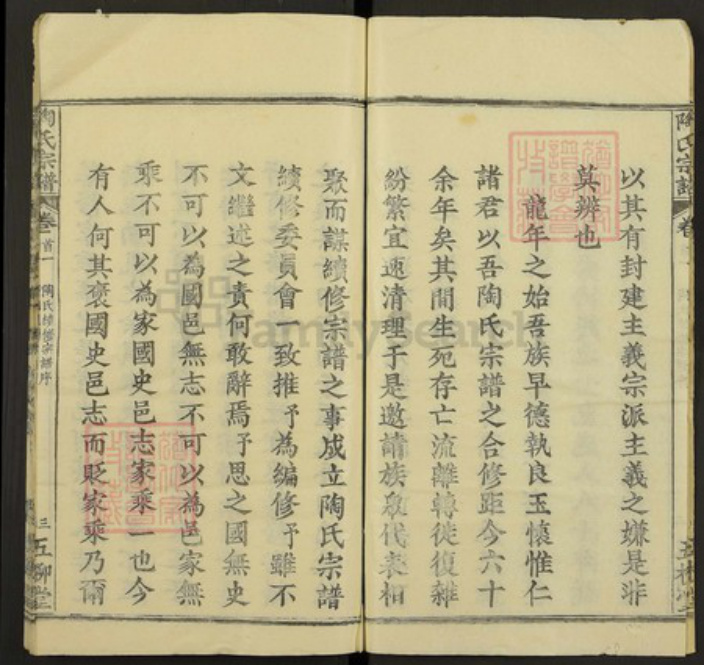 以其有封建主義宗派主義之嫌是非
莫辨也
龍年之始吾族早德執良玉懷惟仁
諸君以吾陶氏宗譜之合修距今六十
余年矣其間生死存亡流離轉徙復雜
紛繁宜速清理于是邀請族衆代表相
聚而謀續修宗譜之事成立陶氏宗譜
續修委員會一致推予為編修予雖不
文繼述之責何敢辭焉予思之國無史
不可以為國邑無志不可以為邑家無
乘不可以為家國史邑志家乘一也今
有人何其褒國史邑志而貶家乘乃爾
陶氏宗譜
卷首一
陶氏續修宗譜序
三
五柳堂
陶氏宗譜
卷
五柳堂
FamilySearch